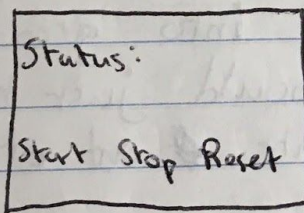 Status:
Start Stop Reset